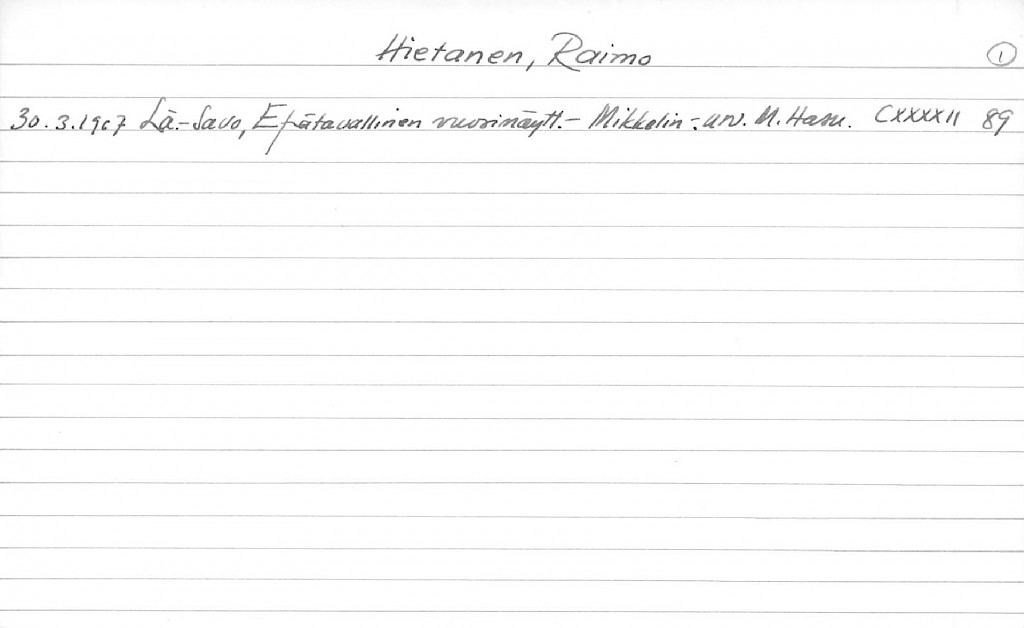 Hietanen, Raimo 1
30.3.1967 Lä.-Savo, Epätavallinen vuosinäytt.- Mikkelin :arv. M. Hasu. CXXXXII 89